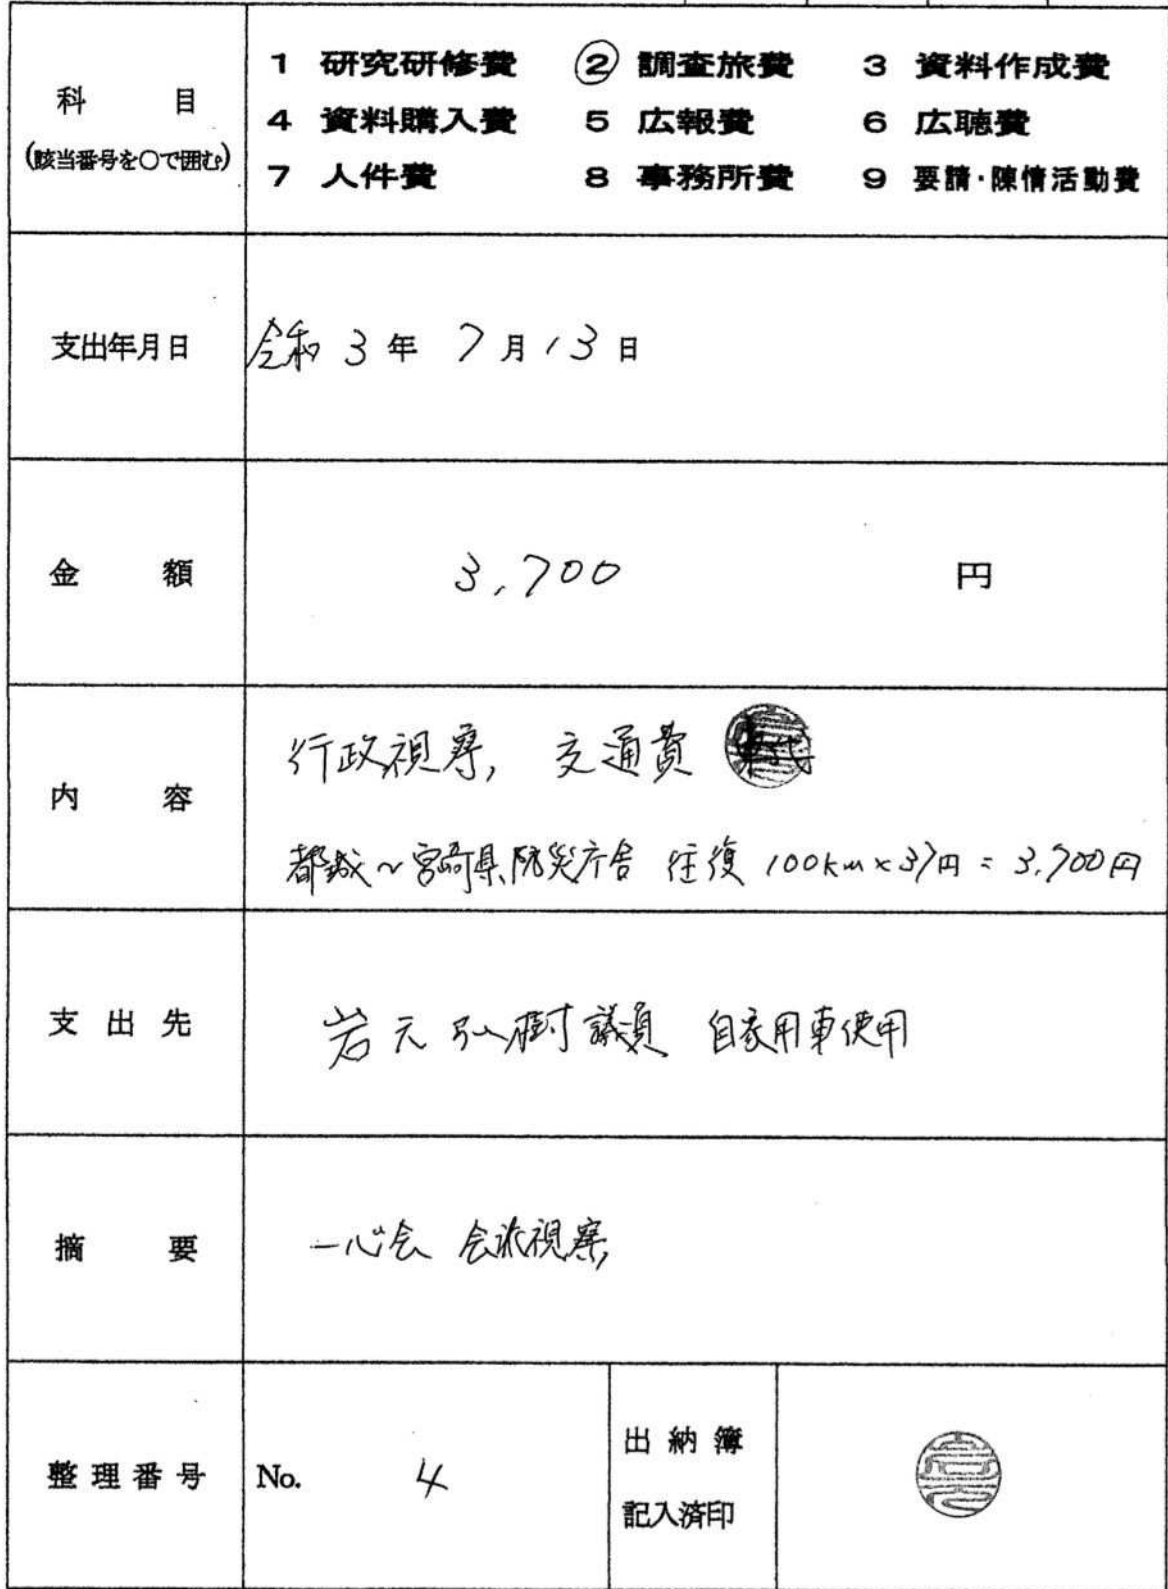 科 目
(該当番号を○で囲む)
1 研究研修費 ② 調査旅費 3 資料作成費
4 資料購入費 5 広報費 6 広聴費
7 人件費 8 事務所費 9 要請・陳情活動費
支出年月日 令和 3 年 7 月 13 日
金 額 3,700 円
内 容
行政視察, 交通費
都城~宮崎県防災庁舎 往復 100km×37円=3,700円
支 出 先 岩元弘樹議員 自家用車使用
摘 要 一心会 会派視察
整 理 番 号 No. 4
出 納 簿
記入済印